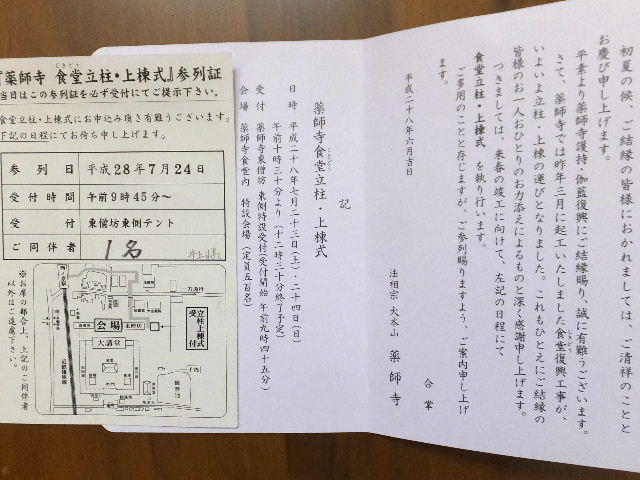 『薬師寺 食堂立柱・上棟式』参列証
じきどう
当日はこの参列証を必ず受付にてご提示下さい。
食堂立柱・上棟式にお申込み頂き有難うございます。
下記の日程にてお待ち申し上げます。
参列日 平成28年7月24日
受付時間 午前9時45分~
受付 東僧坊東側テント
ご同伴者 1名
※お席の都合上、上記のご同伴者
以外はご遠慮下さい。
会場
大講堂
東僧坊
立柱上棟式
受付
近鉄橿原線
初夏の候、ご結縁の皆様におかれましては、ご清祥のことと
お慶び申し上げます。
平素より薬師寺護持・伽藍復興にご結縁賜り、誠に有難うございます。
さて、薬師寺では昨年三月に起工いたしました食堂復興工事が、
じきどう
いよいよ立柱・上棟の運びとなりました。これもひとえにご結縁の
皆様のお一人おひとりのお力添えによるものと深く感謝申し上げます。
つきましては、来春の竣工に向けて、左記の日程にて
食堂立柱・上棟式 を執り行います。
ご多用のことと存じますが、ご参列賜りますよう、ご案内申し上げ
ます。
合掌
平成二十八年六月吉日
法相宗 大本山 薬師寺
記
薬師寺食堂立柱・上棟式
じきどう
日時 平成二十八年七月二十三日(土)・二十四日(日)
午前十時三十分より(十二時三十分終了予定)
受付 薬師寺東僧坊 東側特設受付(受付開始 午前九時四十五分)
会場 薬師寺食堂内 特設会場(定員五百名)